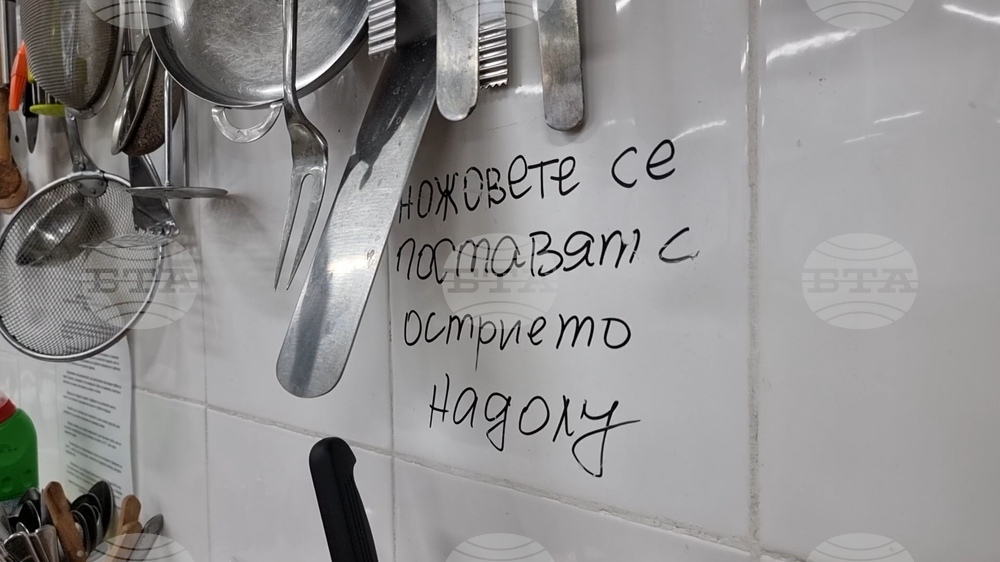 ножовете се
поставят с
острието
надолу
БТА
БТА
БТА